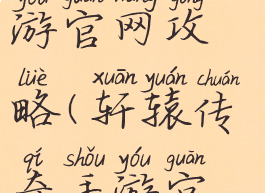 yóu guān wǎng gōng
游官网攻
lüè xuān yuán chuán
略(轩辕传
qí shǒu yóu guān
奇手游官